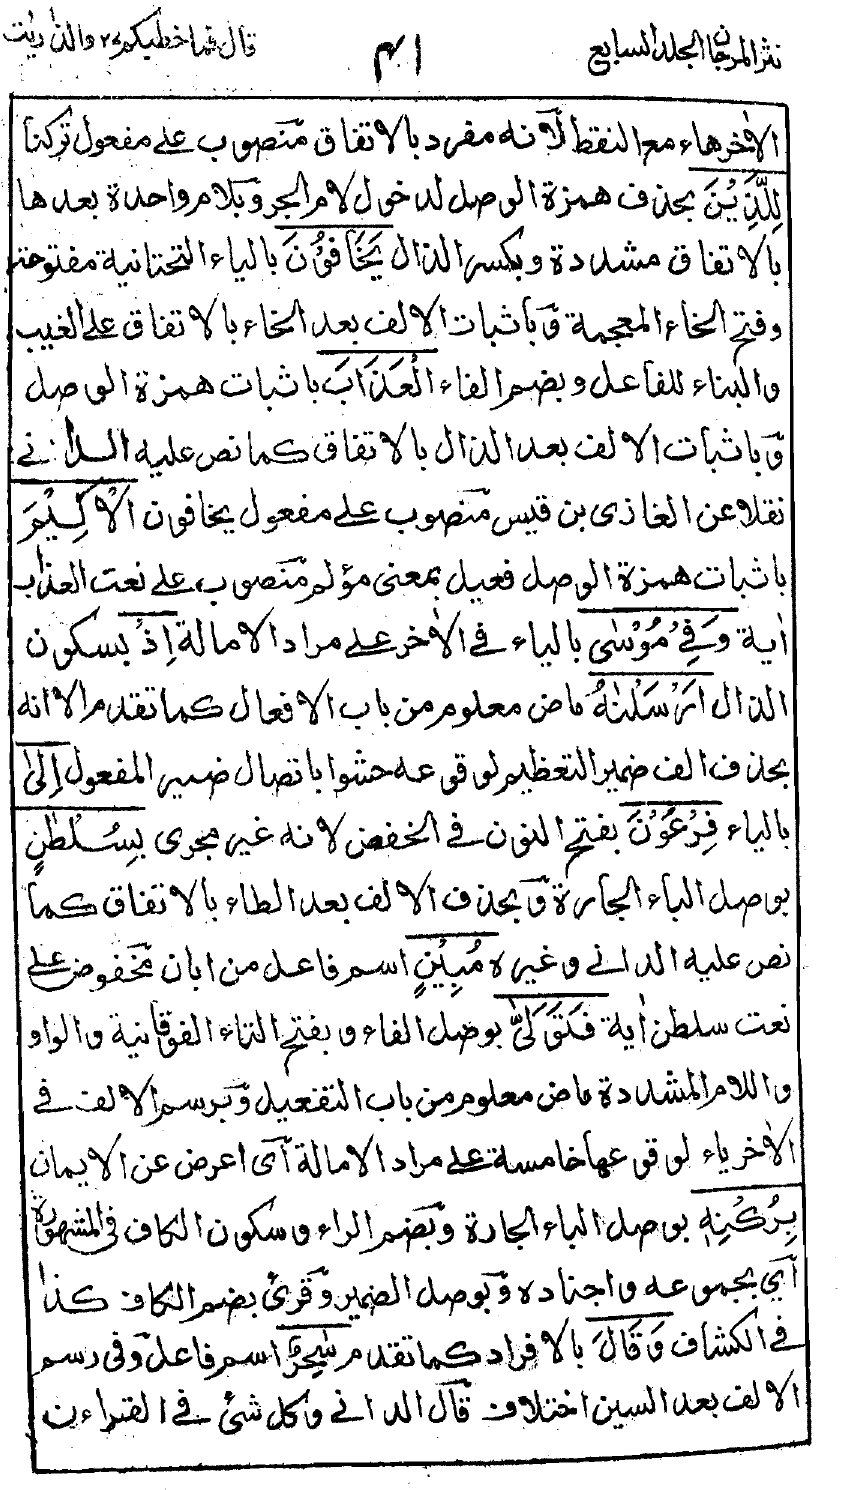 نثر المرجان الجلد السابع
٤١
قال فما خطبكم ٢٧ والذٰریٰت
الاٰخرهاء مع النقط لاَنه مفرد بالاتفاق منصوب علے مفعول تركنا
لِلَّذِيْنَ بحذف همزة الوصل لدخول لام الجر وبلام واحدة بعدها
بالاتفاق مشددة وبكسر الذال يَخَافُوْنَ بالياء التحتانية مفتوحة
وفتح الخاء المعجمة وباثبات الالف بعد الخاء بالاتفاق علے الغيب
والبناء للفاعل وبضم الفاء الْعَذَابَ باثبات همزة الوصل
وباثبات الالف بعد الذال بالاتفاق كما نص عليه الدانے
نقلا عن الغازى بن قيس منصوب علے مفعول يخافون الْاَلِيْمَ
باثبات همزة الوصل فعيل بمعنى مؤلم منصوب علے نعت العذاب
اٰية وَفِيْ مُوْسٰى بالياء فے الاٰخر علے مراد الامالة اِذْ بسكون
الذال اَرْسَلْنٰهُ ماض معلوم من باب الافعال كما تقدم الا انه
بحذف الف ضمير التعظيم لوقوعه حشوا باتصال ضمير المفعول اِلٰى
بالياء فِرْعَوْنَ بفتح النون فے الخفض لانه غير مجرى بِسُلْطٰنٍ
بوصل الباء الجارة وبحذف الالف بعد الطاء بالاتفاق كما
نص عليه الدانے وغيره مُبِيْنٍ اسم فاعل من ابان مخفوض علے
نعت سلطن اٰية فَتَوَلّٰى بوصل الفاء وبفتح التاء الفوقانية والواو
واللام المشددة ماض معلوم من باب التفعيل وبرسم الالف فے
الاٰخر ياء لوقوعها خامسة علے مراد الامالة اَى اعرض عن الايمان
بِرُكْنِهٖ بوصل الباء الجارة وبضم الراء وسكون الكاف فى المشهورة
اَي بجموعه واجناده وبوصل الضمير وقرئ بضم الكاف كذا
فے الكشاف وَقَالَ بالافراد كما تقدم سٰحِرٌ اسم فاعل وفى رسم
الالف بعد السين اختلاف قال الدانے وكل شئ فے القراٰن